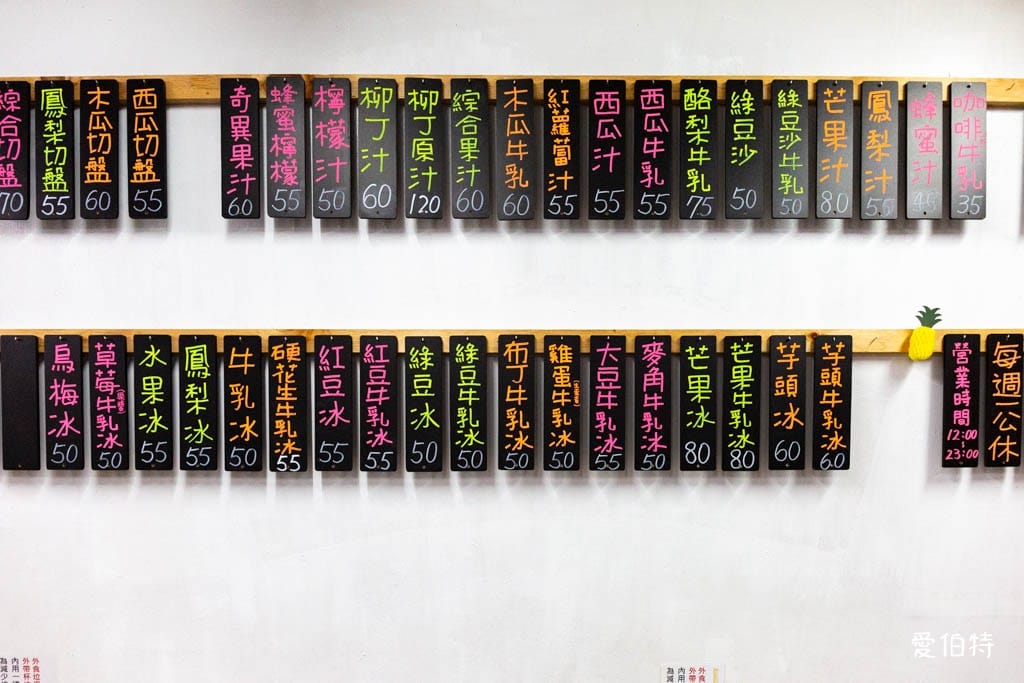 綜合切盤 70
鳳梨切盤 55
木瓜切盤 60
西瓜切盤 55
奇異果汁 60
蜂蜜檸檬 55
檸檬汁 50
柳丁汁 60
柳丁原汁 120
綜合果汁 60
木瓜牛乳 60
紅蘿蔔汁 55
西瓜汁 55
西瓜牛乳 55
酪梨牛乳 75
綠豆沙 50
綠豆沙牛乳 50
芒果汁 80
鳳梨汁 55
蜂蜜汁 45
咖啡牛乳 35
烏梅冰 50
草莓牛乳冰 50
水果冰 55
鳳梨冰 55
牛乳冰 50
硬花生牛乳冰 55
紅豆冰 55
紅豆牛乳冰 55
綠豆冰 50
綠豆牛乳冰 50
布丁牛乳冰 50
雞蛋牛乳冰 50
大豆牛乳冰 55
麥角牛乳冰 50
芒果冰 80
芒果牛乳冰 80
芋頭冰 60
芋頭牛乳冰 60
營業時間 12:00 ~ 23:00
每週二公休
愛伯特